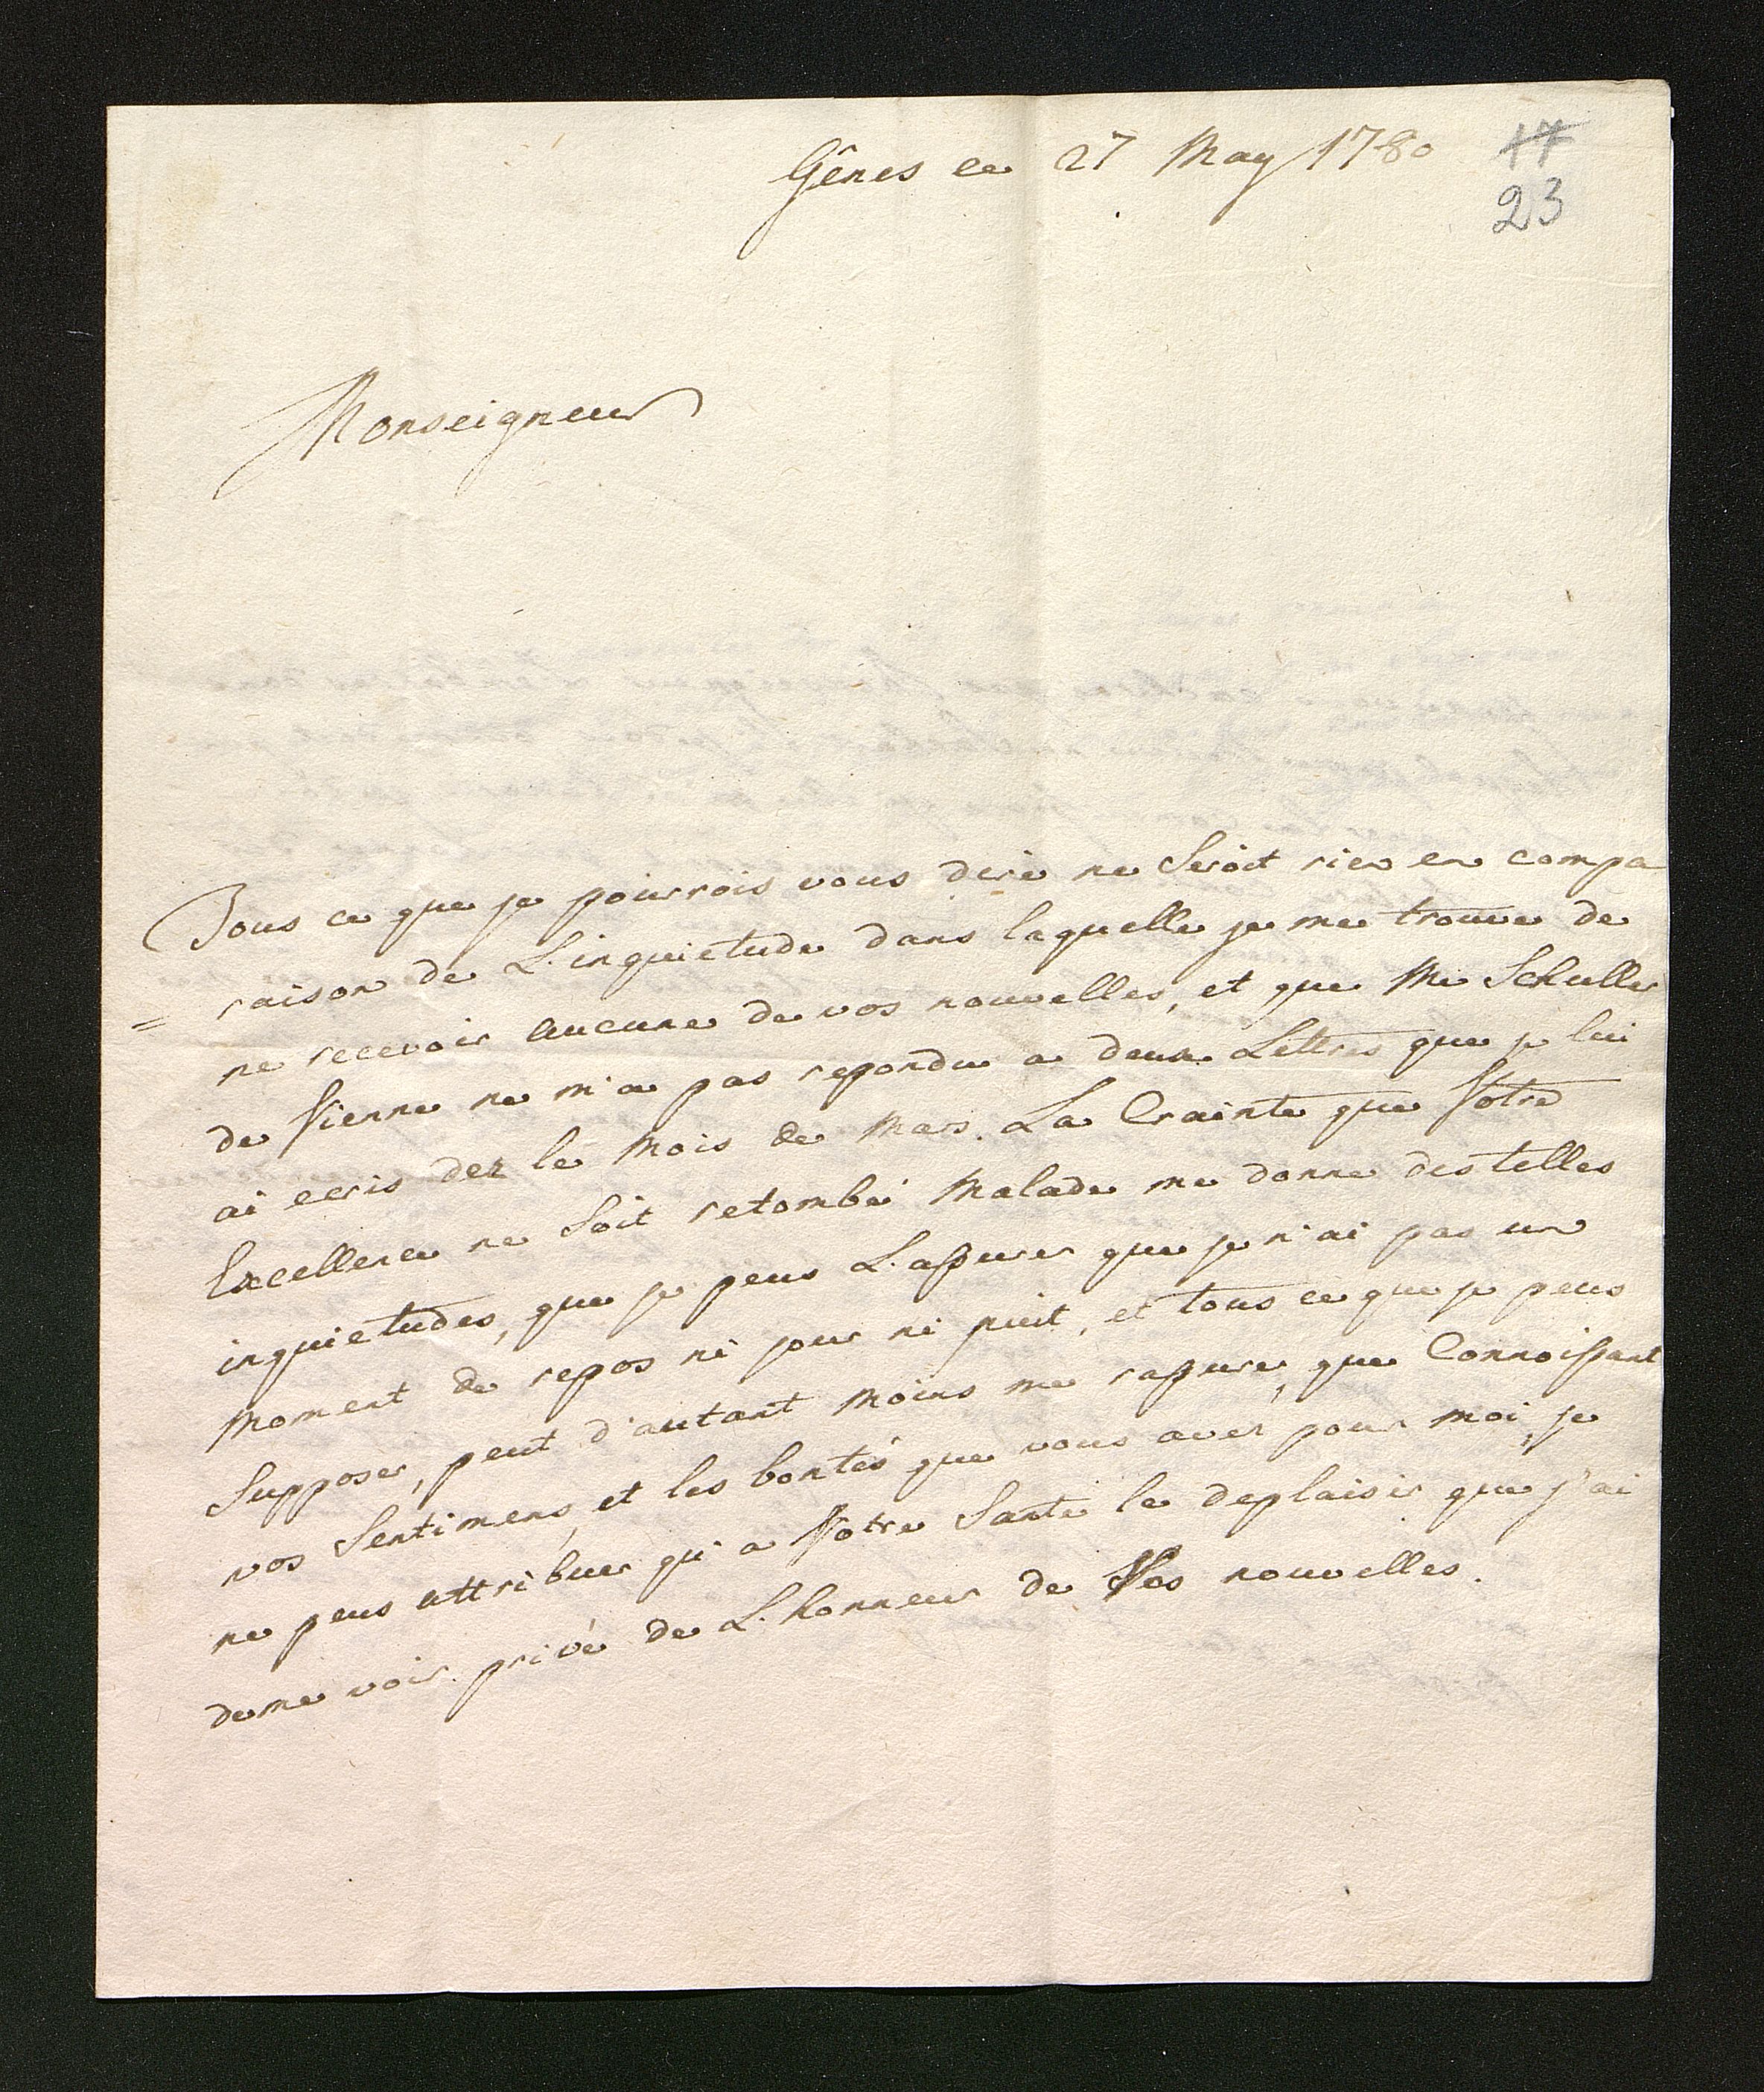 Gênes ce 27 May 1780
17
23
Monseigneur
Tous ce que je pourrois vous dire ne Seroit rien en compa
= raison de L'inquietude dans laquelle je me trouve de
ne recevoir aucune de vos nouvelles, et que Mr Schuller
de Vienne ne m'a pas repondu a deux Lettres que je lui
ai ecris dez le Mois de Mars. La Crainte que Votre
Excellence ne Soit retombé Malade me donne des telles
inquietudes, que je peus L'assurer que je n'ai pas un
Moment de repos ni jour ni nuit, et tous ce que je peus
Supposer, peut d'autant Moins me rassurer, que Connoissant
vos Sentimens, et les bontés que vous aves pour moi, je
ne peus attribuer qu'a Votre Santé le deplaisir que j'ai
de me voir privé de L'honneur de Vos nouvelles.